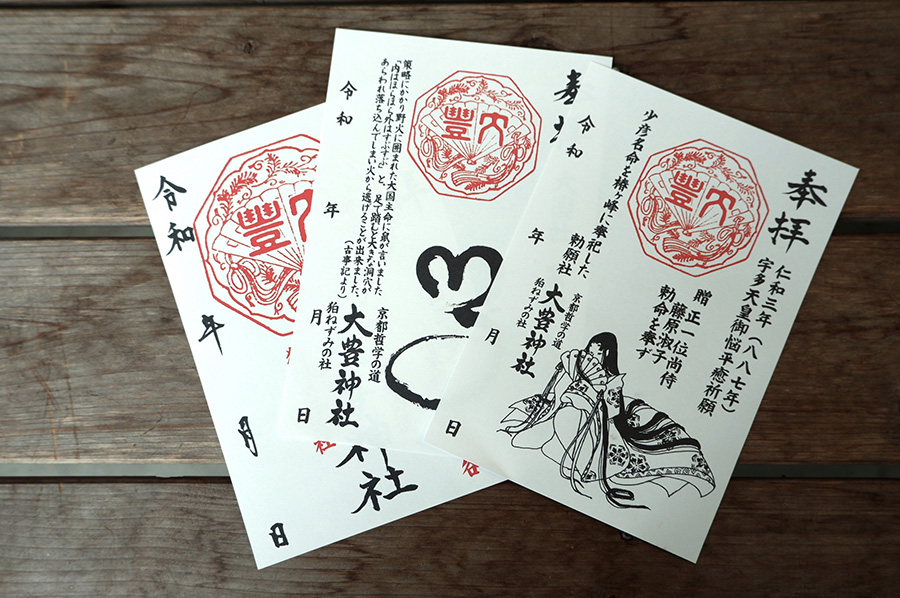 奉拝
仁和三年（八八七年）
宇多天皇御悩平癒祈願
贈正一位尚侍
藤原淑子
勅命を奉ず
大豊
少彦名命を椿ヶ峰に奉祀した、
勅願社
京都哲学の道
大豊神社
狛ねずみの社
令和
年
月
日
大豊
策略にかかり野火に囲まれた大国主命に鼠が言いました
「内はほらほら外はすぶすぶ」と、足で踏むと大きな洞穴が
あらわれ落ち込んでしまい火から逃げることが出来ました、
（古事記より）
京都哲学の道
大豊神社
狛ねずみの社
令和
年
月
日
大豊
社
令和
年
月
日